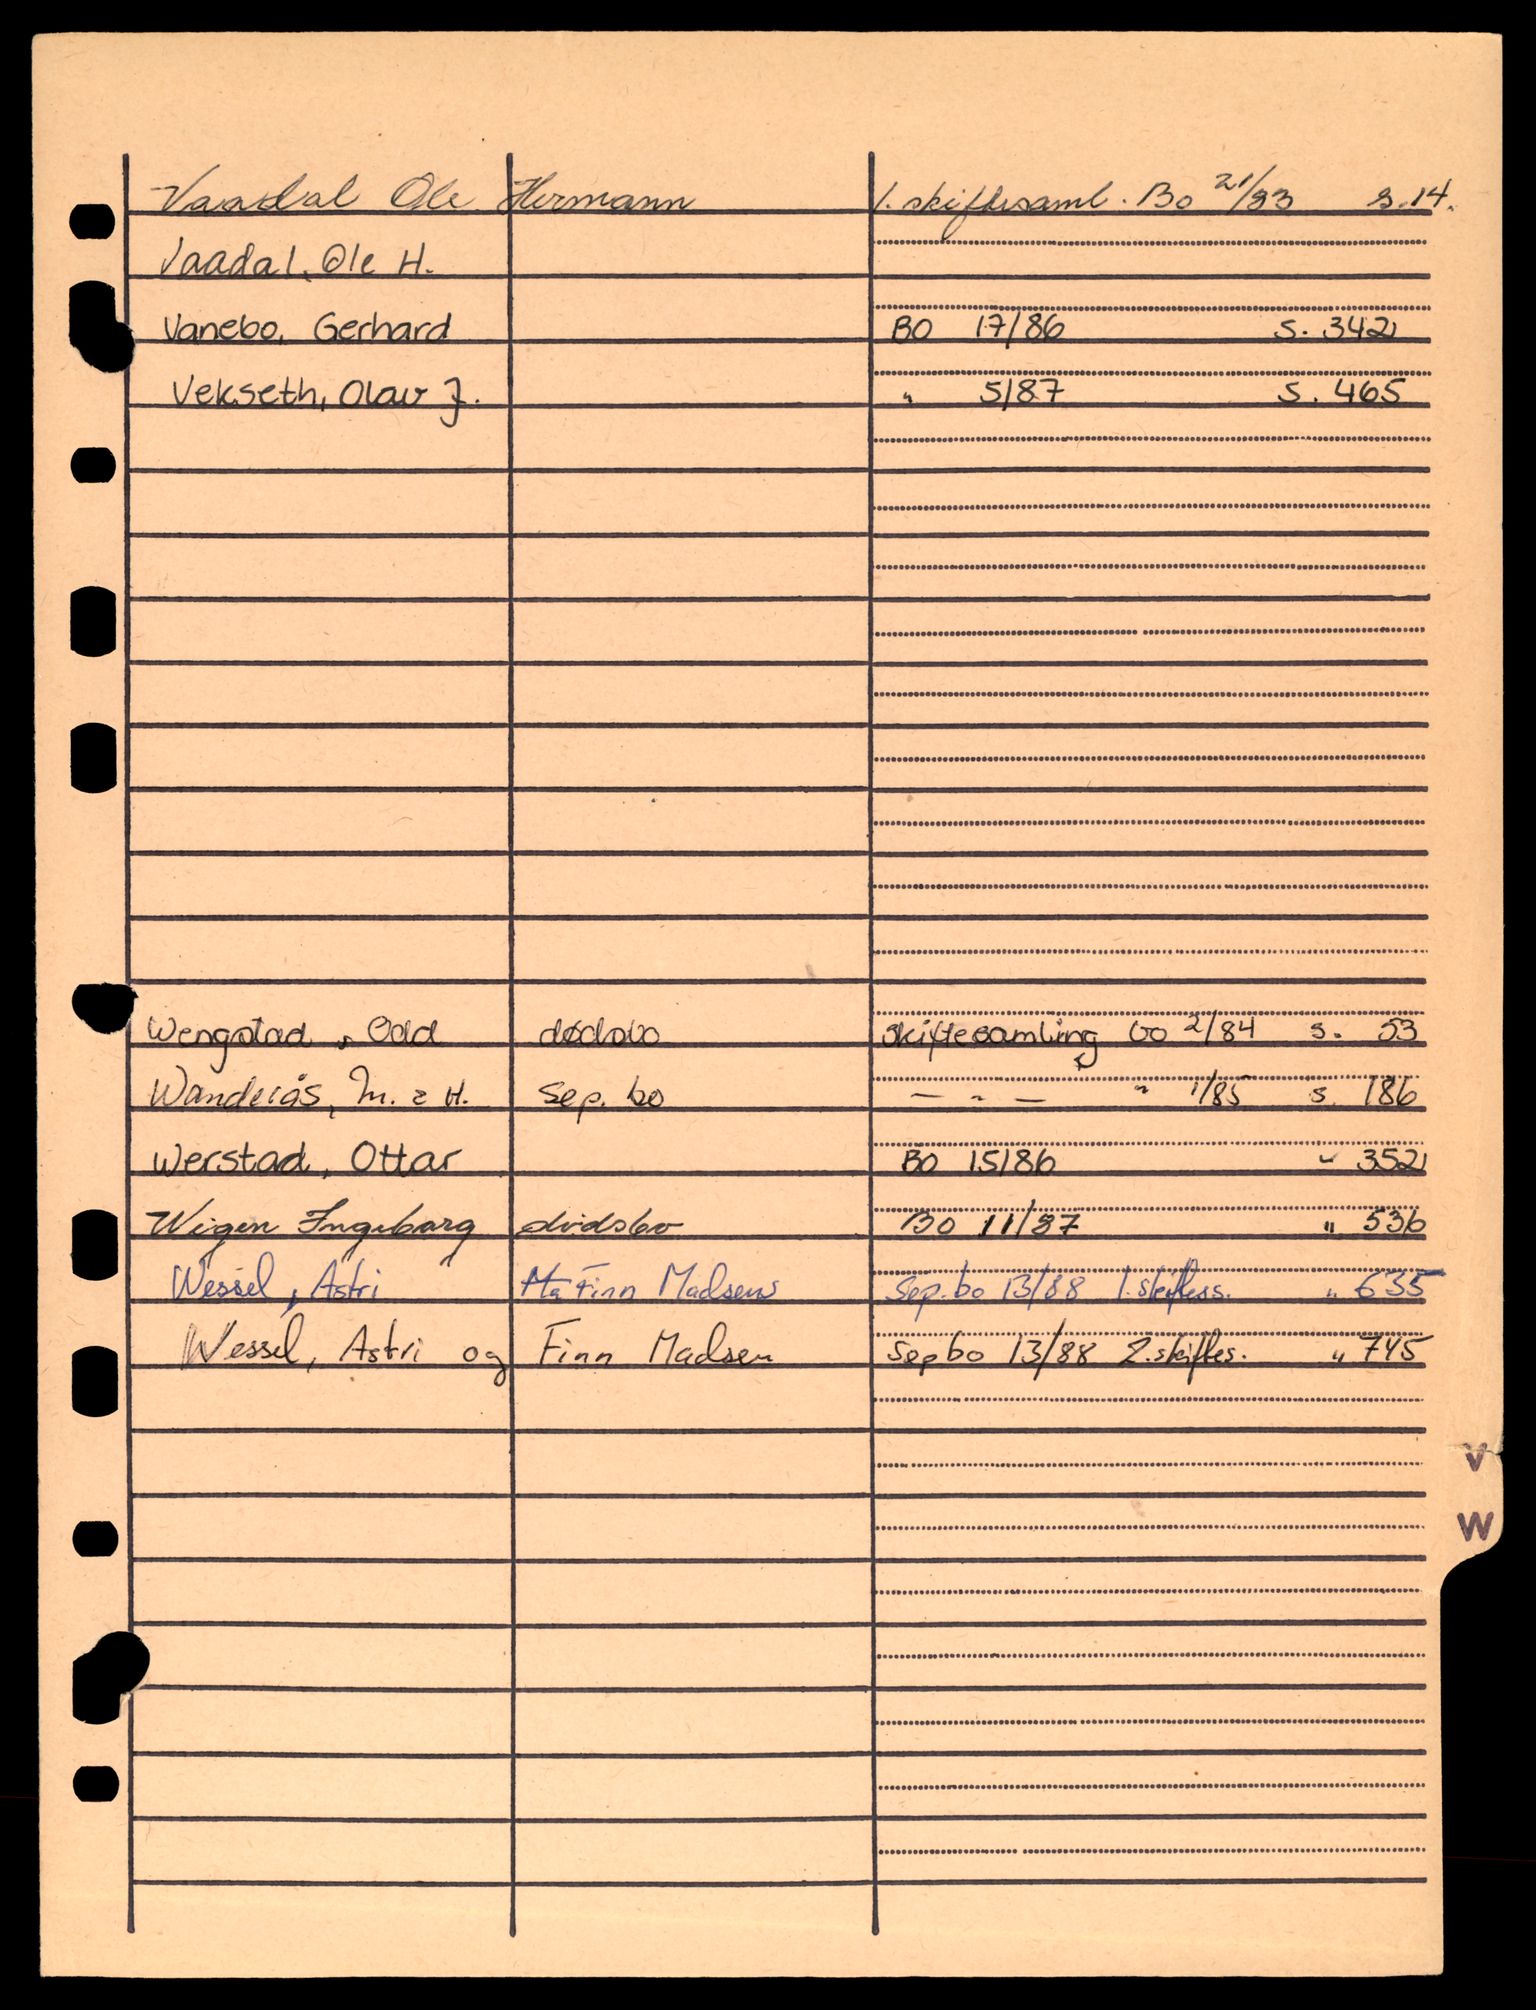 Vaadal Ole Hermann 1. skiftesaml. Bo 21/83 s. 14.
Vaadal, Ole H.
Vanebo, Gerhard BO 17/86 s. 342
Vekseth, Olav J. " 5/87 s. 465
Wengstad, Odd dødsbo Skiftesamling bo 2/84 s. 53
Wanderås, M. & H. Sep. bo — " — " 1/85 s. 186
Werstad, Ottar BO 15/86 " 352
Wigen Ingebarg dødsbo Bo 11/87 " 536
Wessel, Astri Finn Madsen Sep. bo 13/88 1. skiftess. " 635
Wessel, Astri og Finn Madsen Sepbo 13/88 2. skiftes. " 745
V
W